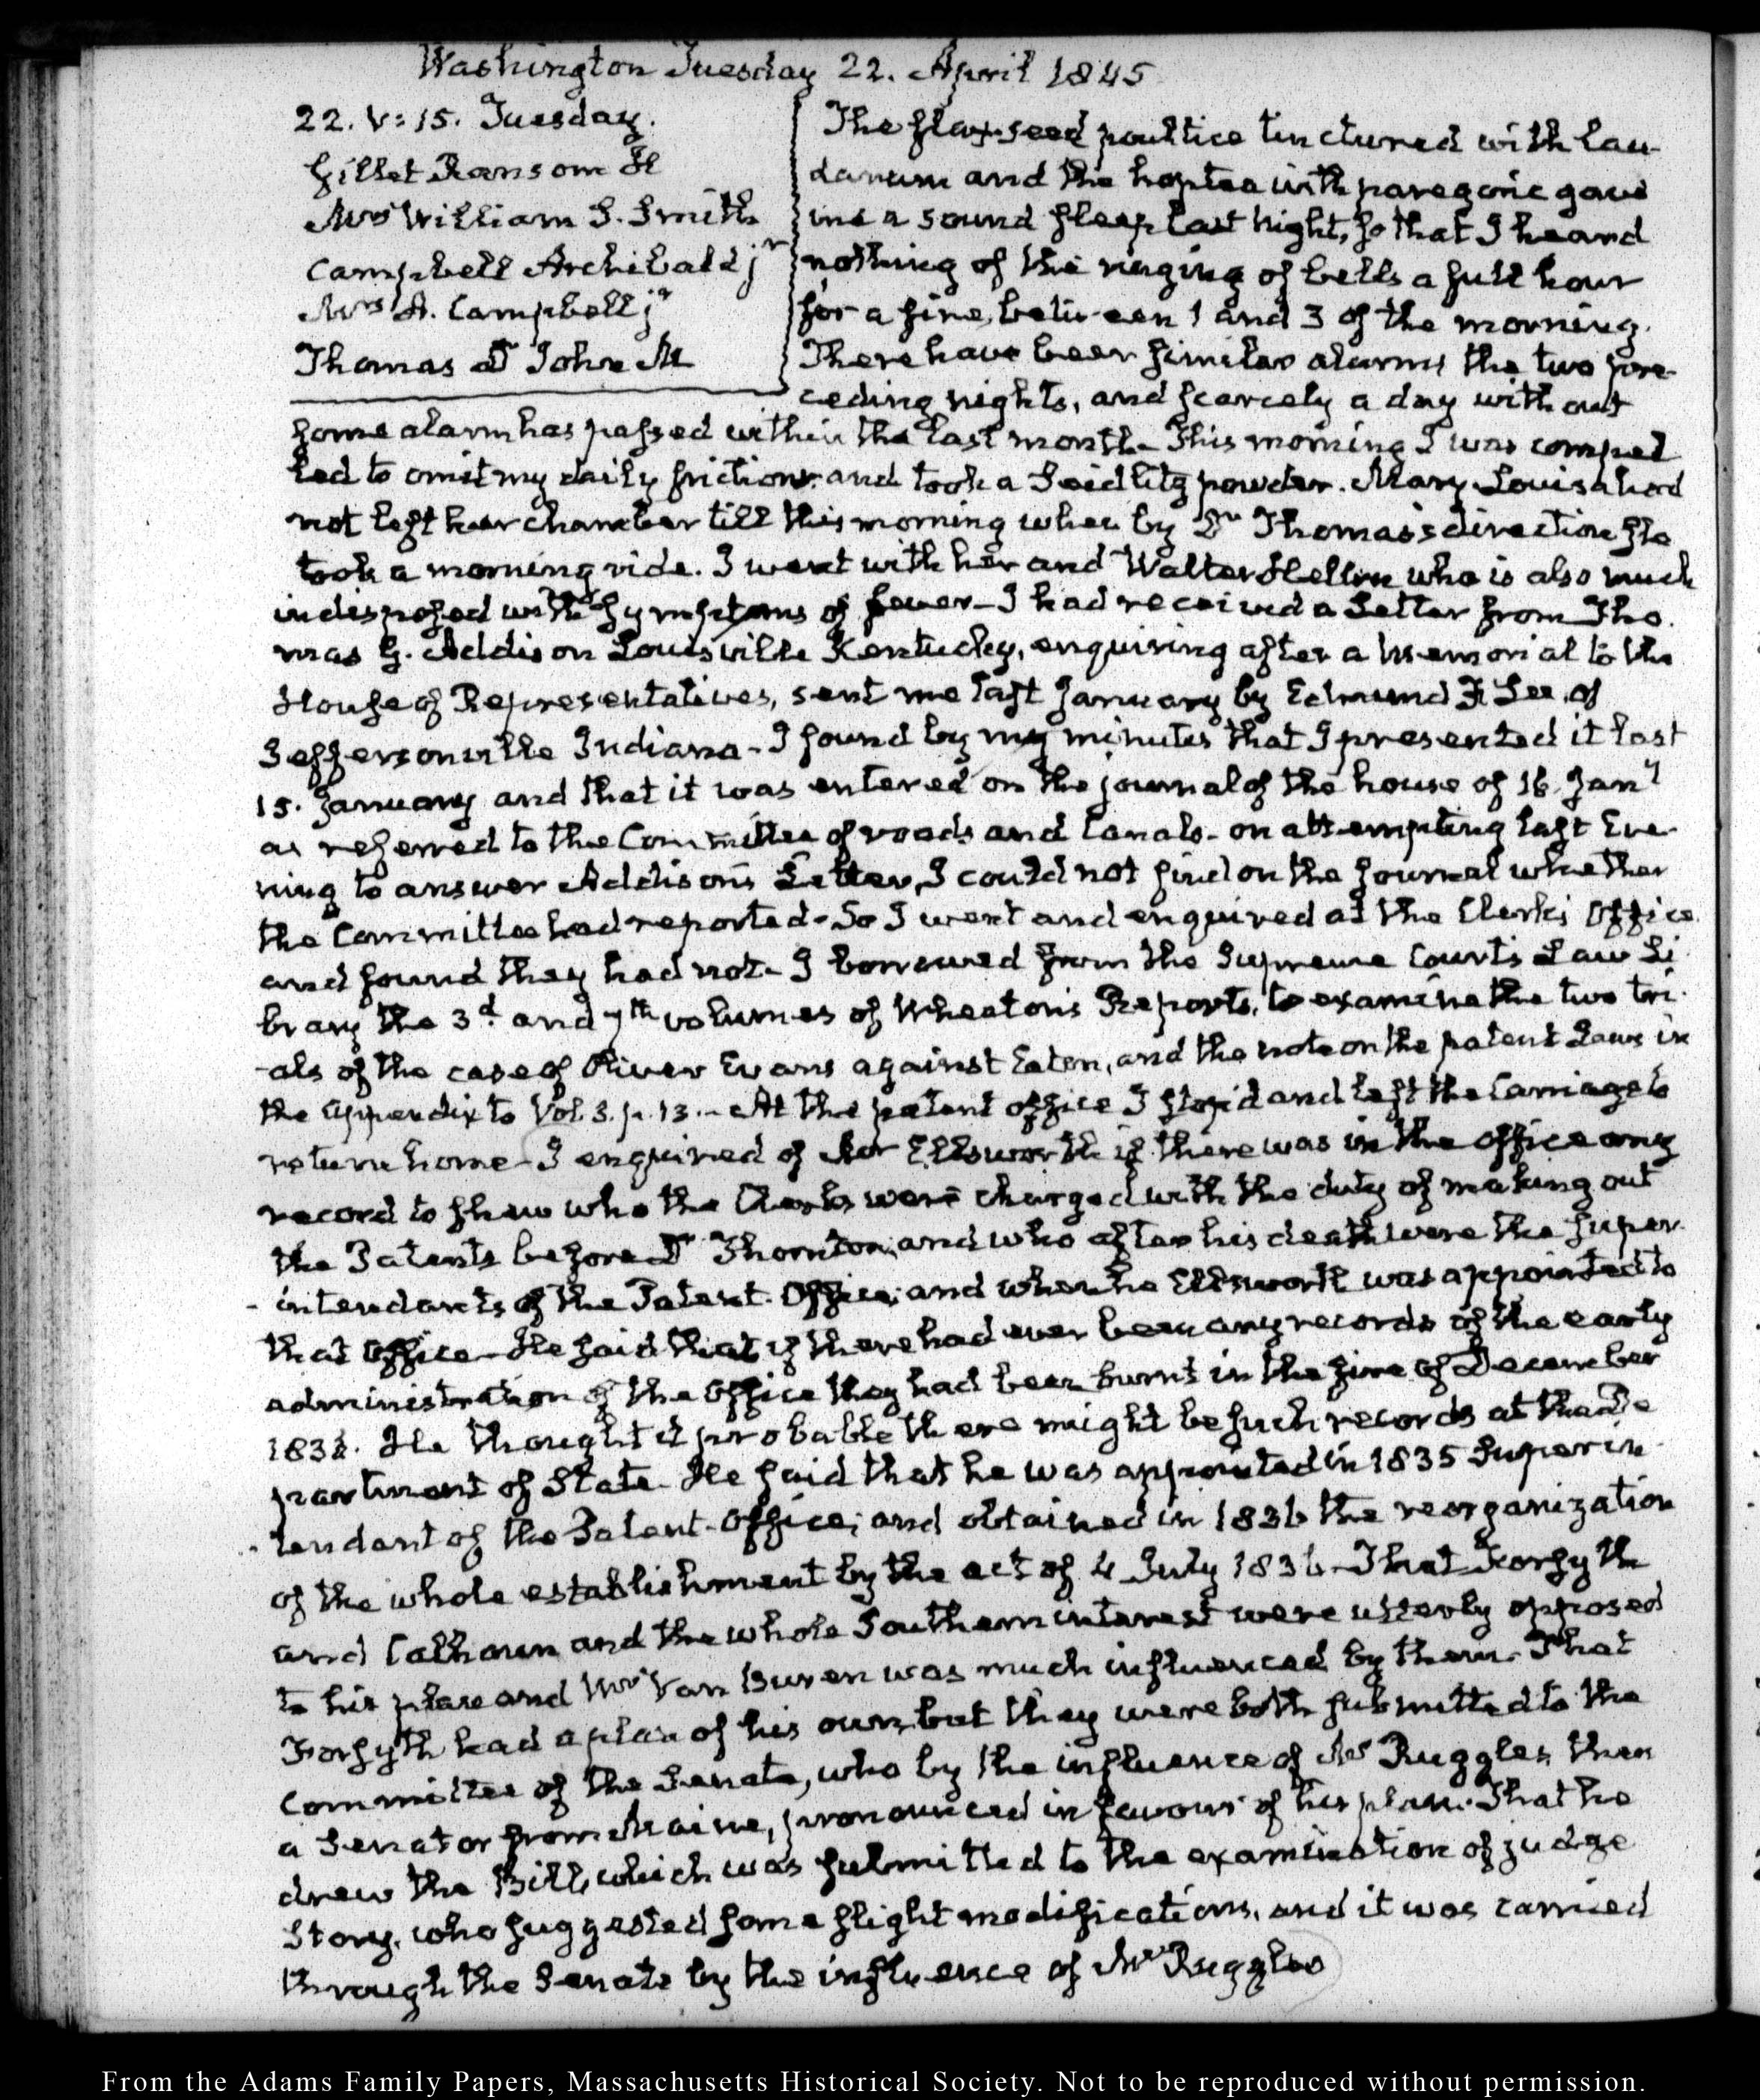 Washington Tuesday 22. April 1845
22. V: 15. Tuesday.
Gillet Ransom H
Mrs William S. Smith
Campbell Archibald jr
Mrs A. Campbell jr
Thomas Dr John M
The flax-seed poultice tinctured with lau-
danum and the hop tea with paregoric gave
me a sound sleep last night, so that I heard
nothing of the ringing of bells a full hour
for a fire, between 1 and 3 of the morning.
There have been similar alarms the two pre-
ceding nights, and scarcely a day without
some alarm has passed within the last month. This morning I was compel
led to omit my daily friction and took a Seidlitz powder. Mary Louisa had
not left her chamber till this morning when by Dr Thomas's direction she
took a morning ride. I went with her and Walter Hellen who is also much
indisposed with symptoms of fever - I had received a Letter from Tho.
mas G. Addison Louisville Kentucky, enquiring after a Memorial to the
House of Representatives, sent me last January by Edmund F Lee, of
Jeffersonville Indiana - I found by my minutes that I presented it last
15. January and that it was entered on the journal of the house of 16. Jany
as referred to the Committee of roads and Canals - on attempting last Eve-
ning to answer Addison's Letter, I could not find on the Journal whether
the Committee had reported - So I went and enquired at the Clerk's Office
and found they had not - I borrowed from the Supreme Court's Law Li
brary the 3d and 7th volumes of Wheaton's Reports, to examine the two tri-
-als of the case of Oliver Evans against Eaton, and the note on the patent Laws in
the appendix to Vol. 3. p. 13 - At the patent office I stop'd and left the Carriage to
return home - I enquired of Mr Ellsworth if there was in the office any
record to shew who the Clerks were charged with the duty of making out
the Patents before Dr Thornton, and who after his death were the super-
- intendants of the Patent Office; and when he Ellsworth was appointed to
that Office - He said that if there had ever been any records of the early
administration of the Office they had been burnt in the fire of December
1836. He thought it probable there might be such records at the De
partment of State. He said that he was appointed in 1835 Superin
tendant of the Patent-Office; and obtained in 1836 the reorganization
of the whole establishment by the act of 4 July 1836 - That Forsyth
and Calhoun and the whole Southern interest were utterly opposed
to his plan and Mr Van Buren was much influenced by them - That
Forsyth had a plan of his own, but they were both submitted to the
Committee of the Senate, who by the influence of Mr Ruggles, then
a Senator from Maine, pronounced in favour of his plan. That he
drew the Bill, which was submitted to the examination of judge
Story, who suggested some slight modifications, and it was carried
through the Senate by the influence of Mr Ruggles
From the Adams Family Papers, Massachusetts Historical Society. Not to be reproduced without permission.